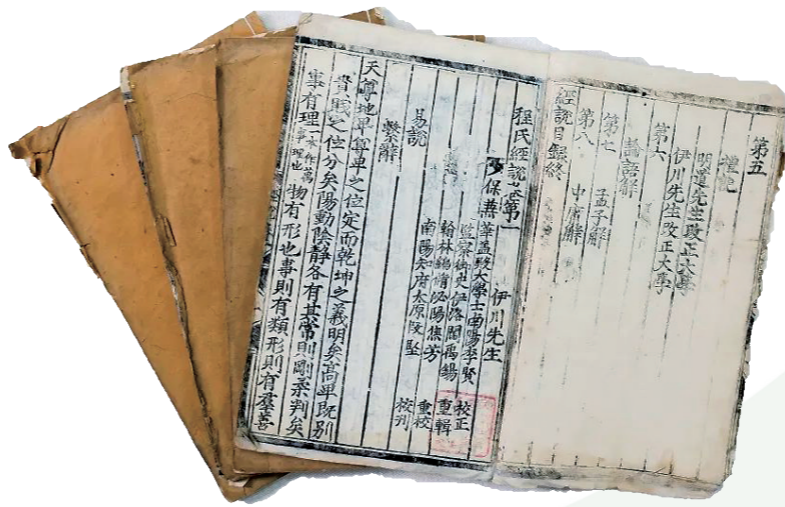 第五
禮記
明道先生改正大學
伊川先生改正大學
第六
論語解
第七
孟子解
第八
中庸解
經說目録終
程氏經說卷第一
伊川先生
少保兼華蓋殿大學士南陽李賢 校正
監察御史伊洛閻禹錫 重輯
翰林編脩泌陽焦芳 重校
南陽知府太原段堅 校刊
易說
繫辭
天尊地卑尊卑之位定而乾坤之義明矣高卑既別
貴賤之位分矣陽動陰靜各有其常則剛柔判矣
事有理一本作萬事理也物有形也事則有類形則有羣善